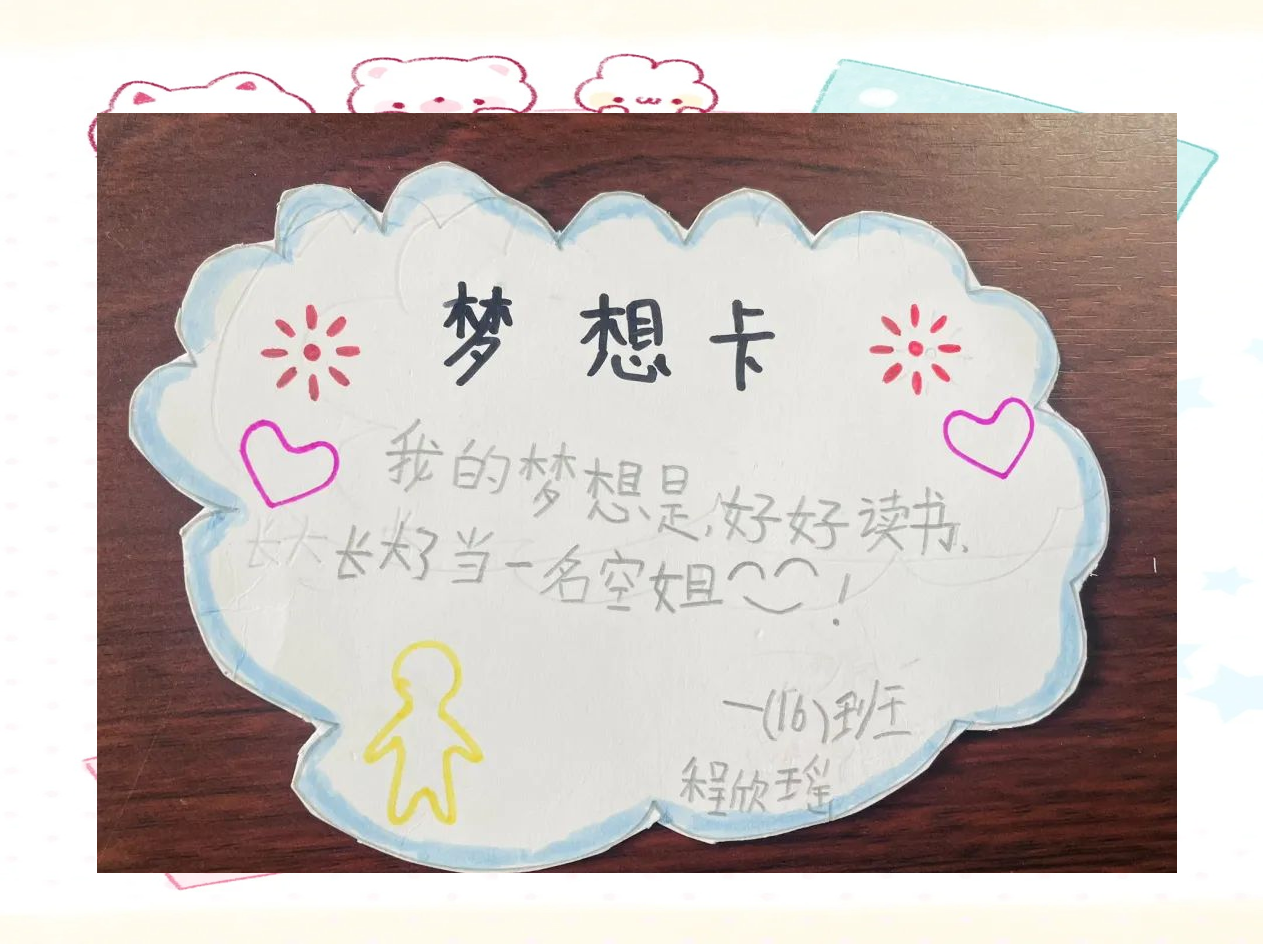 梦想卡
我的梦想是,好好读书.
长大长大了当一名空姐!
一(16)班
程欣瑶